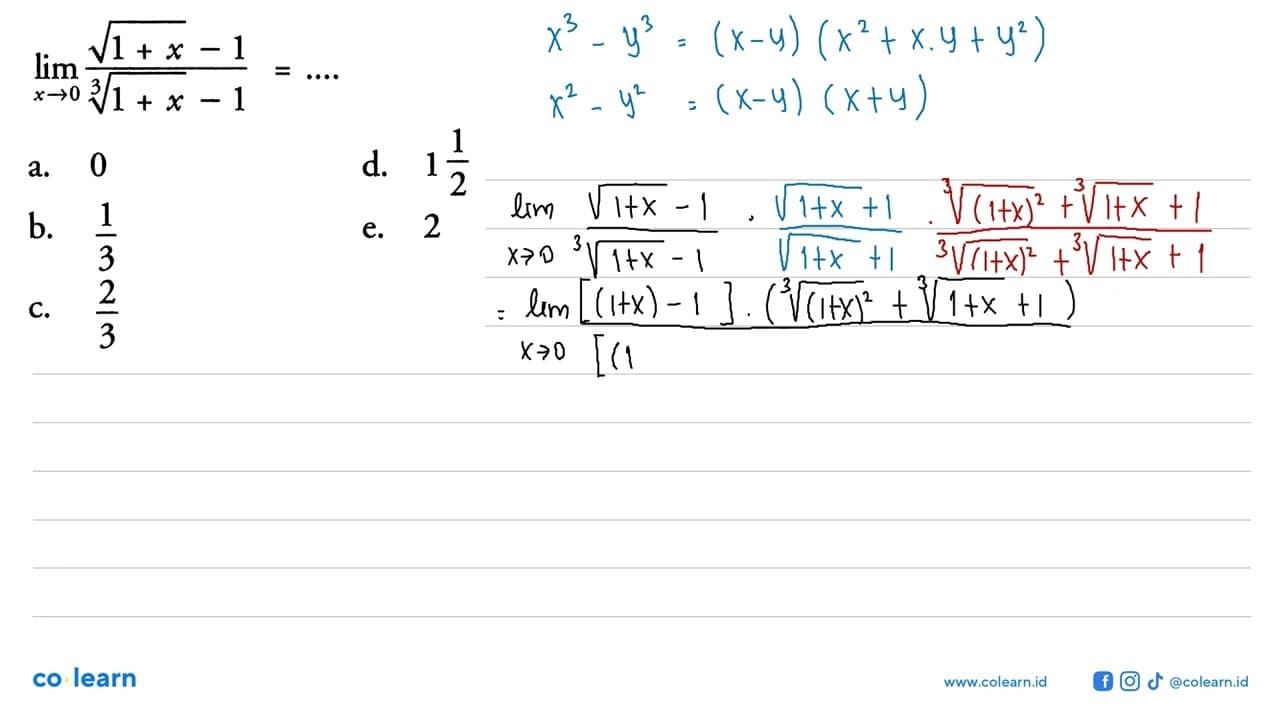 lim x→0 (√(1 + x) − 1)/(∛(1 + x) − 1) = ....
a. 0
b. 1/3
c. 2/3
d. 1 1/2
e. 2
x³ - y³ = (x-y) (x² + x.y + y²)
x² - y² = (x-y) (x+y)
lim x→0 (√(1+x) - 1)/(∛(1+x) - 1) . (√(1+x) + 1)/(√(1+x) + 1) . (∛(1+x)² + ∛(1+x) + 1)/(∛(1+x)² + ∛(1+x) + 1)
= lim x→0 [(1+x) - 1] . (∛(1+x)² + ∛(1+x) + 1)
[(1
co learn
www.colearn.id
@colearn.id